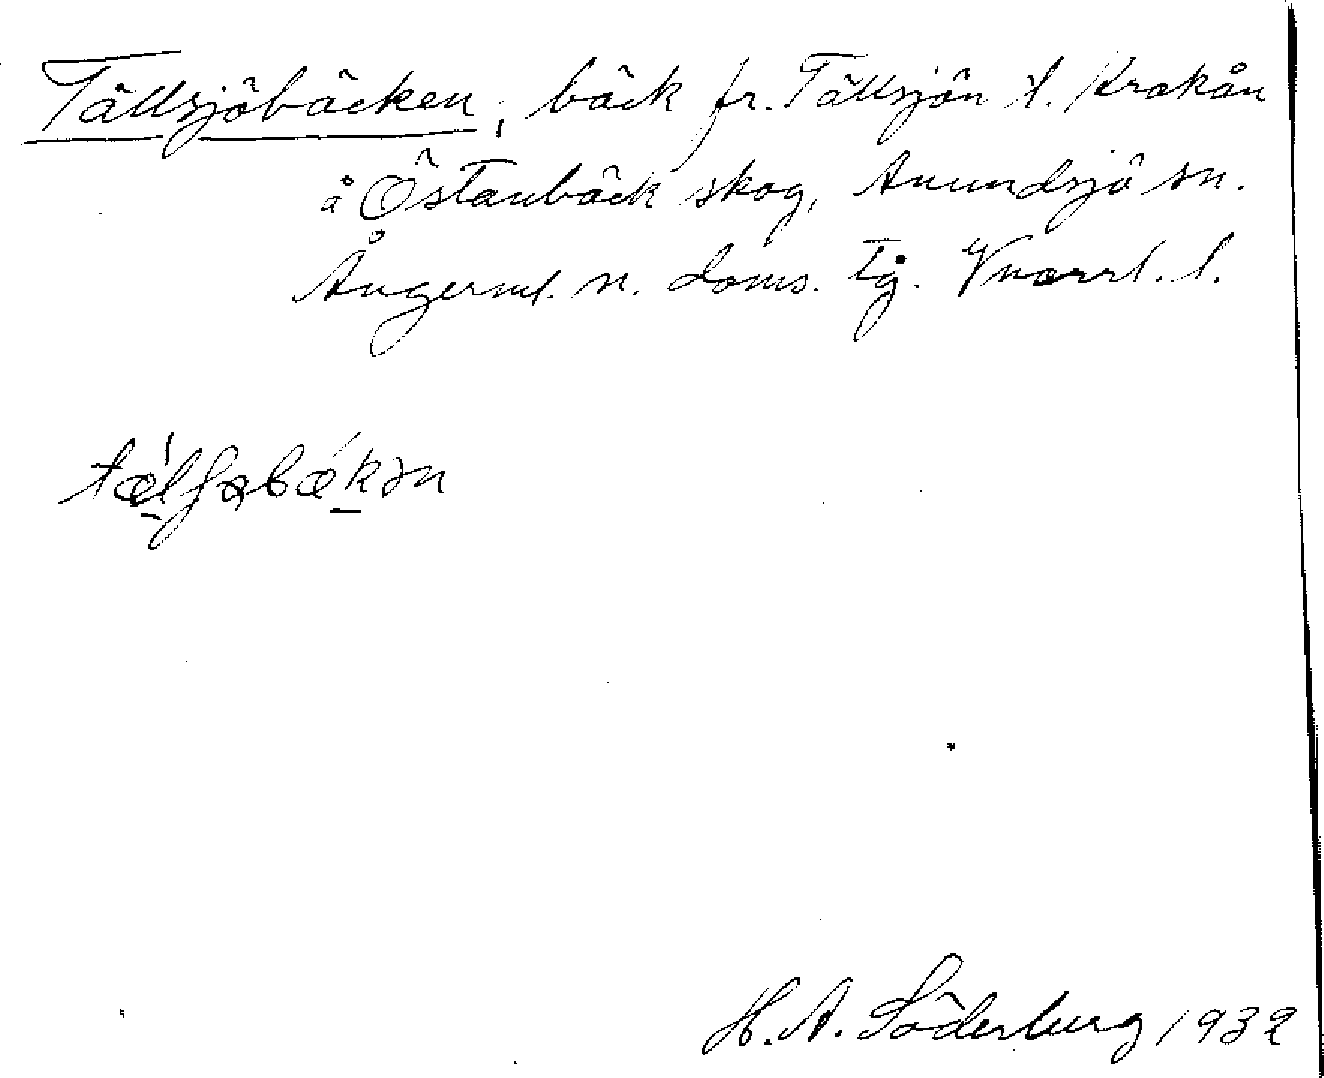 Tällsjöbäcken, bäck fr. Tällsjön t. Krakån
å Östanbäck skog, Anundsjö sn.
Ångerml. n. doms. tg. Vnorrl. l.
H. A. Söderberg 1932